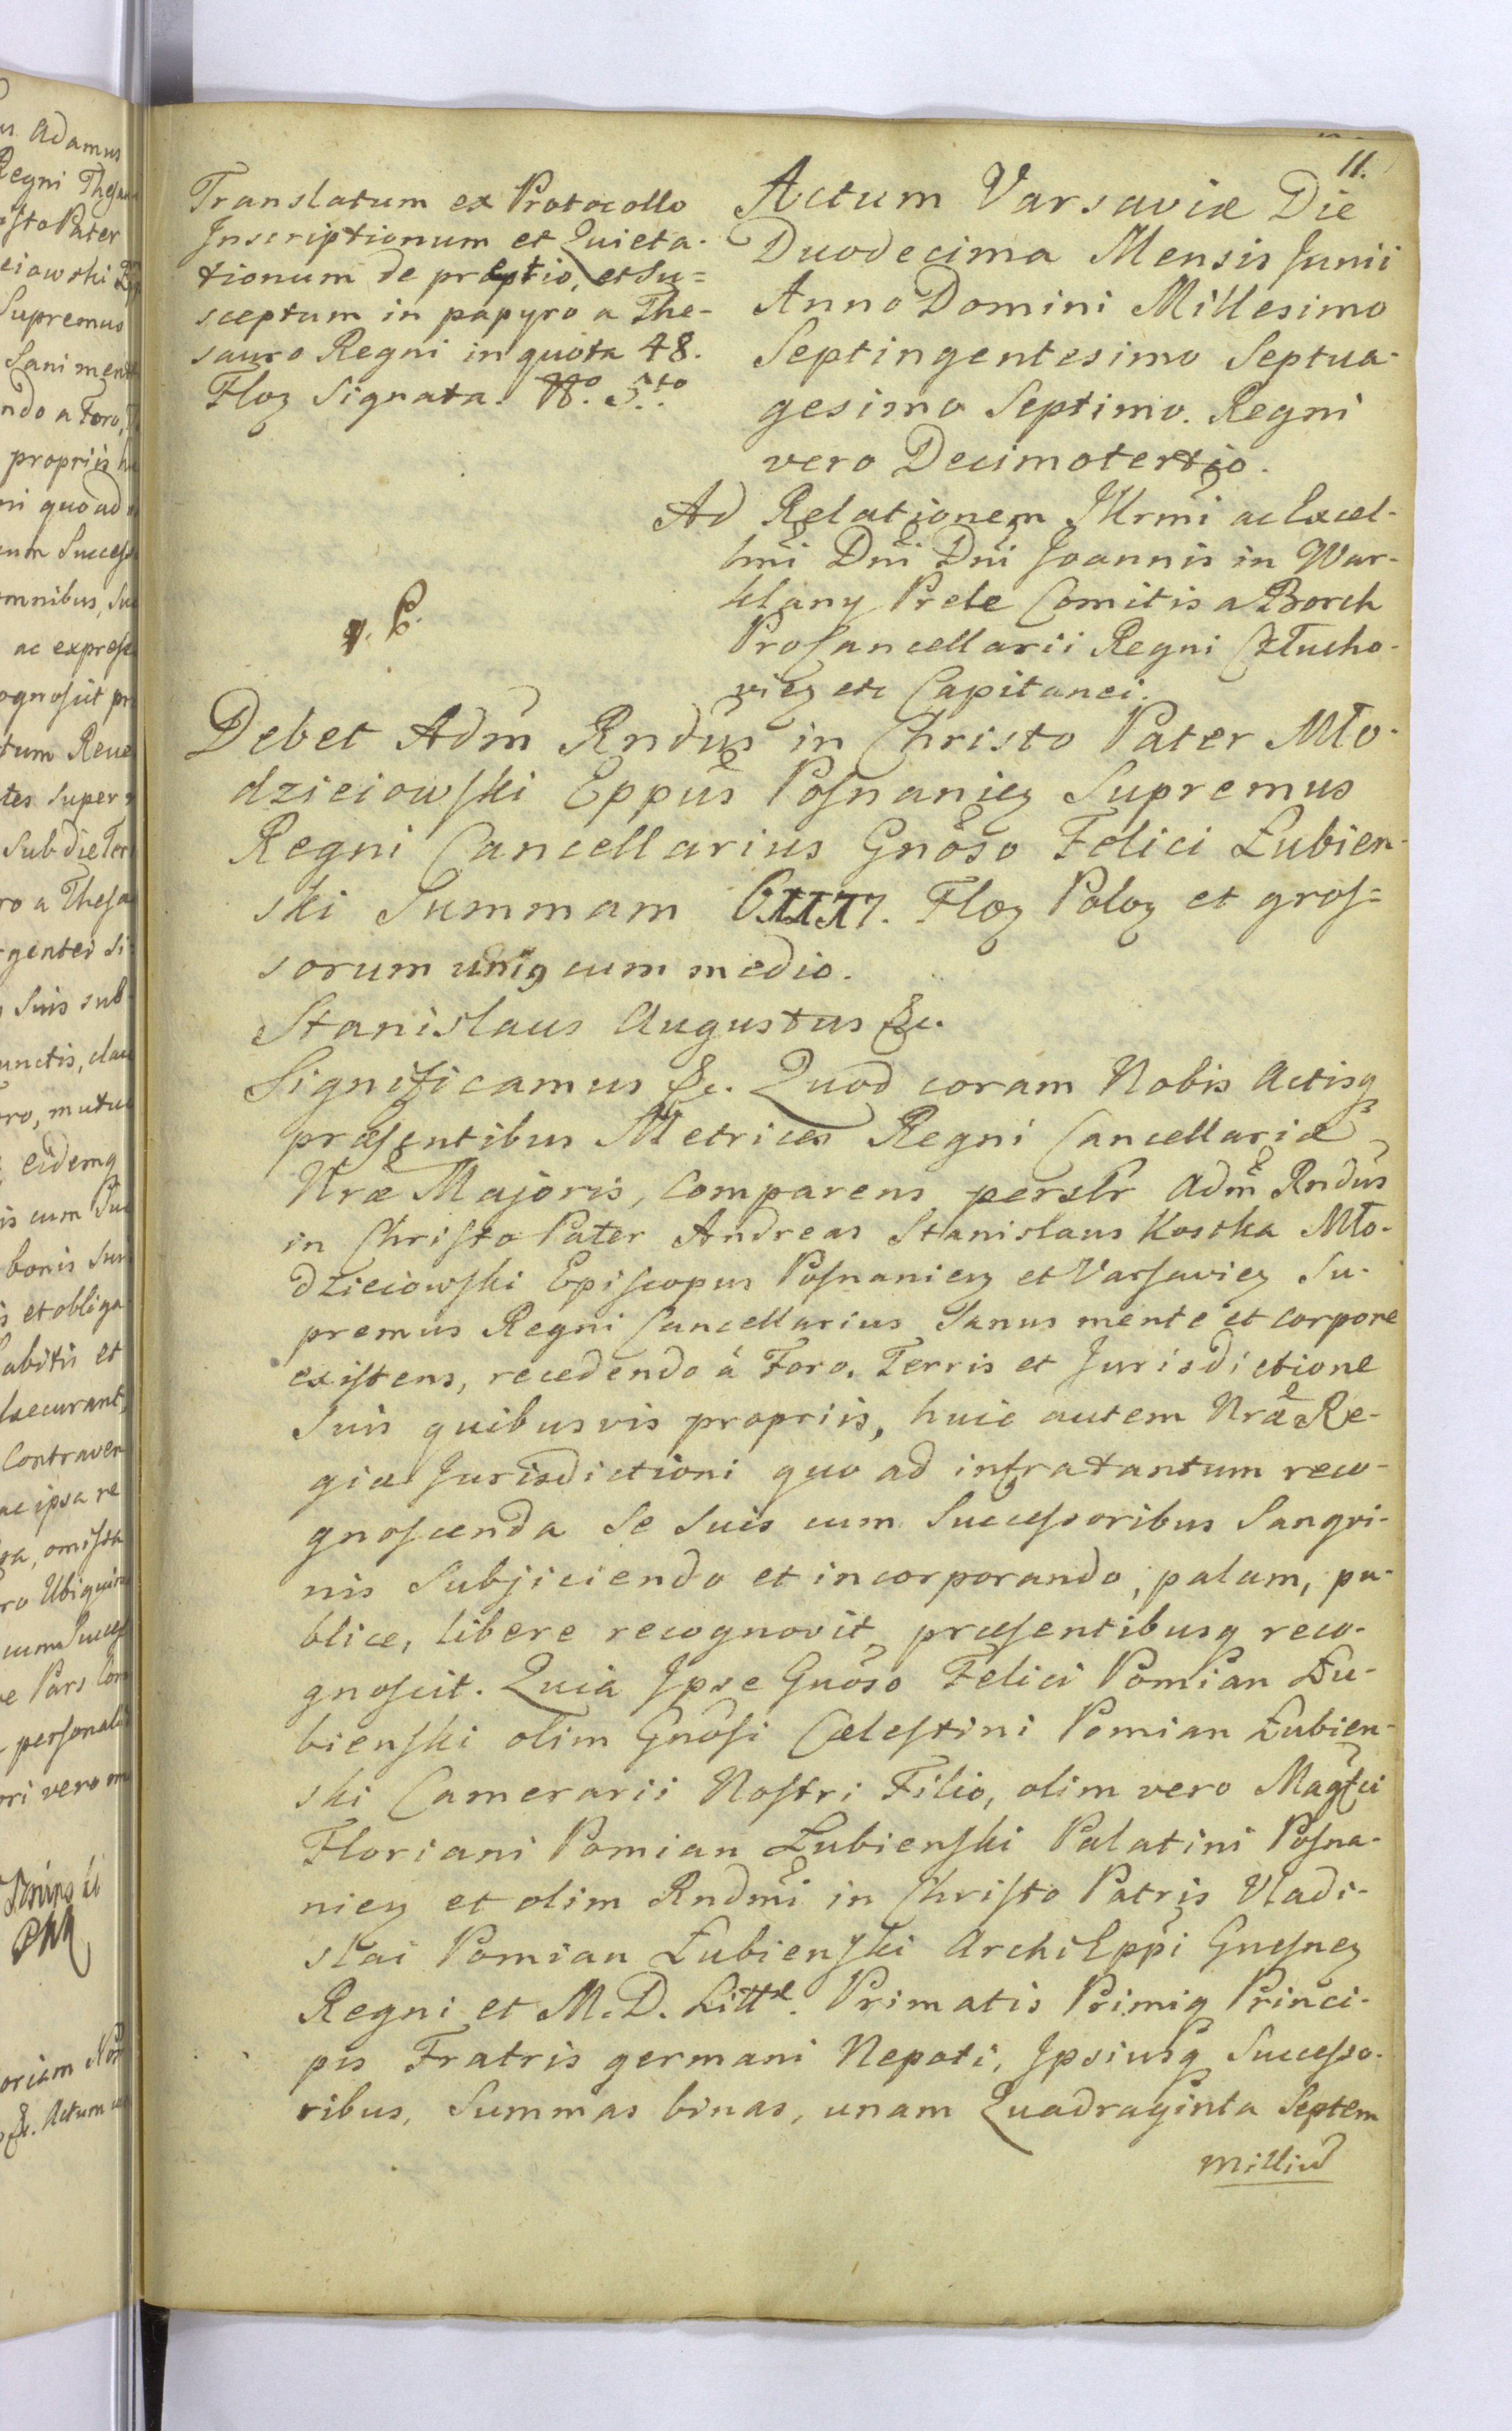 11.
Translatum ex Protocollo
Inscriptionum et Quieta-
tionum de præptio, et Su=
sceptum in papyro a The-
sauro Regni in quota 48.
Floꝝ Signata. No. 5to.
Actum Varsaviæ Die
Duodecima Mensis Junii
Anno Domini Millesimo
Septingentesimo Septua-
gesimo Septimo. Regni
vero Decimotertio.
Ad Relationem Illrmi ac Excel-
lmi Dni Dni Joannis in War-
klany Prele Comitis a Borch
ProCancellarii Regni Człucho-
vieꝝ etc Capitanei.
Debet Adm Rndus in Christo Pater Mło-
dzieiowski Eppus Posnanieꝝ Supremus
Regni Cancellarius Gnoso Felici Łubien-
ski Summam Floꝝ Poloꝝ et gros=
sorum unig cum medio.
Stanislaus Augustus &c.
Significamus &c. Quod coram Nobis Actisq
præsentibus Metrices Regni Cancellariæ
Nræ Majoris, Comparens perslr Adm Rndus
in Christo Pater Andreas Stanislaus Kostka Mło-
dzieiowski Episcopus Posnanieꝝ et Varsavieꝝ Su-
premus Regni Cancellarius Sanus mente et corpore
existens, recedendo á Foro, Terris et Jurisdictione
Suis quibusvis propriis, huic autem Nræ Re-
giæ Jurisdictioni quo ad infratantum reco-
gnoscenda Se Suis cum Successoribus Sangvi-
nis Subjiciendo et incorporando, palam, pu-
blice, libere recognovit, præsentibusq reco-
gnoscit. Quia Ipse Gnoso Felici Pomian Łu-
bienski olim Gnosi Cælestini Pomian Łubien-
ski Camerarii Nostri Filio, olim vero Magfci
Floriani Pomian Łubienski Palatini Posna-
nieꝝ et olim Rndmi in Christo Patris Vladi-
slai Pomian Łubienski ArchiEppi Gnesneꝝ
Regni et M. D. Littæ. Primatis Primiq Princi-
pis Fratris germani Nepoti, Ipsiusq Successo-
ribus, Summas binas, unam Quadraginta Septem
milliu